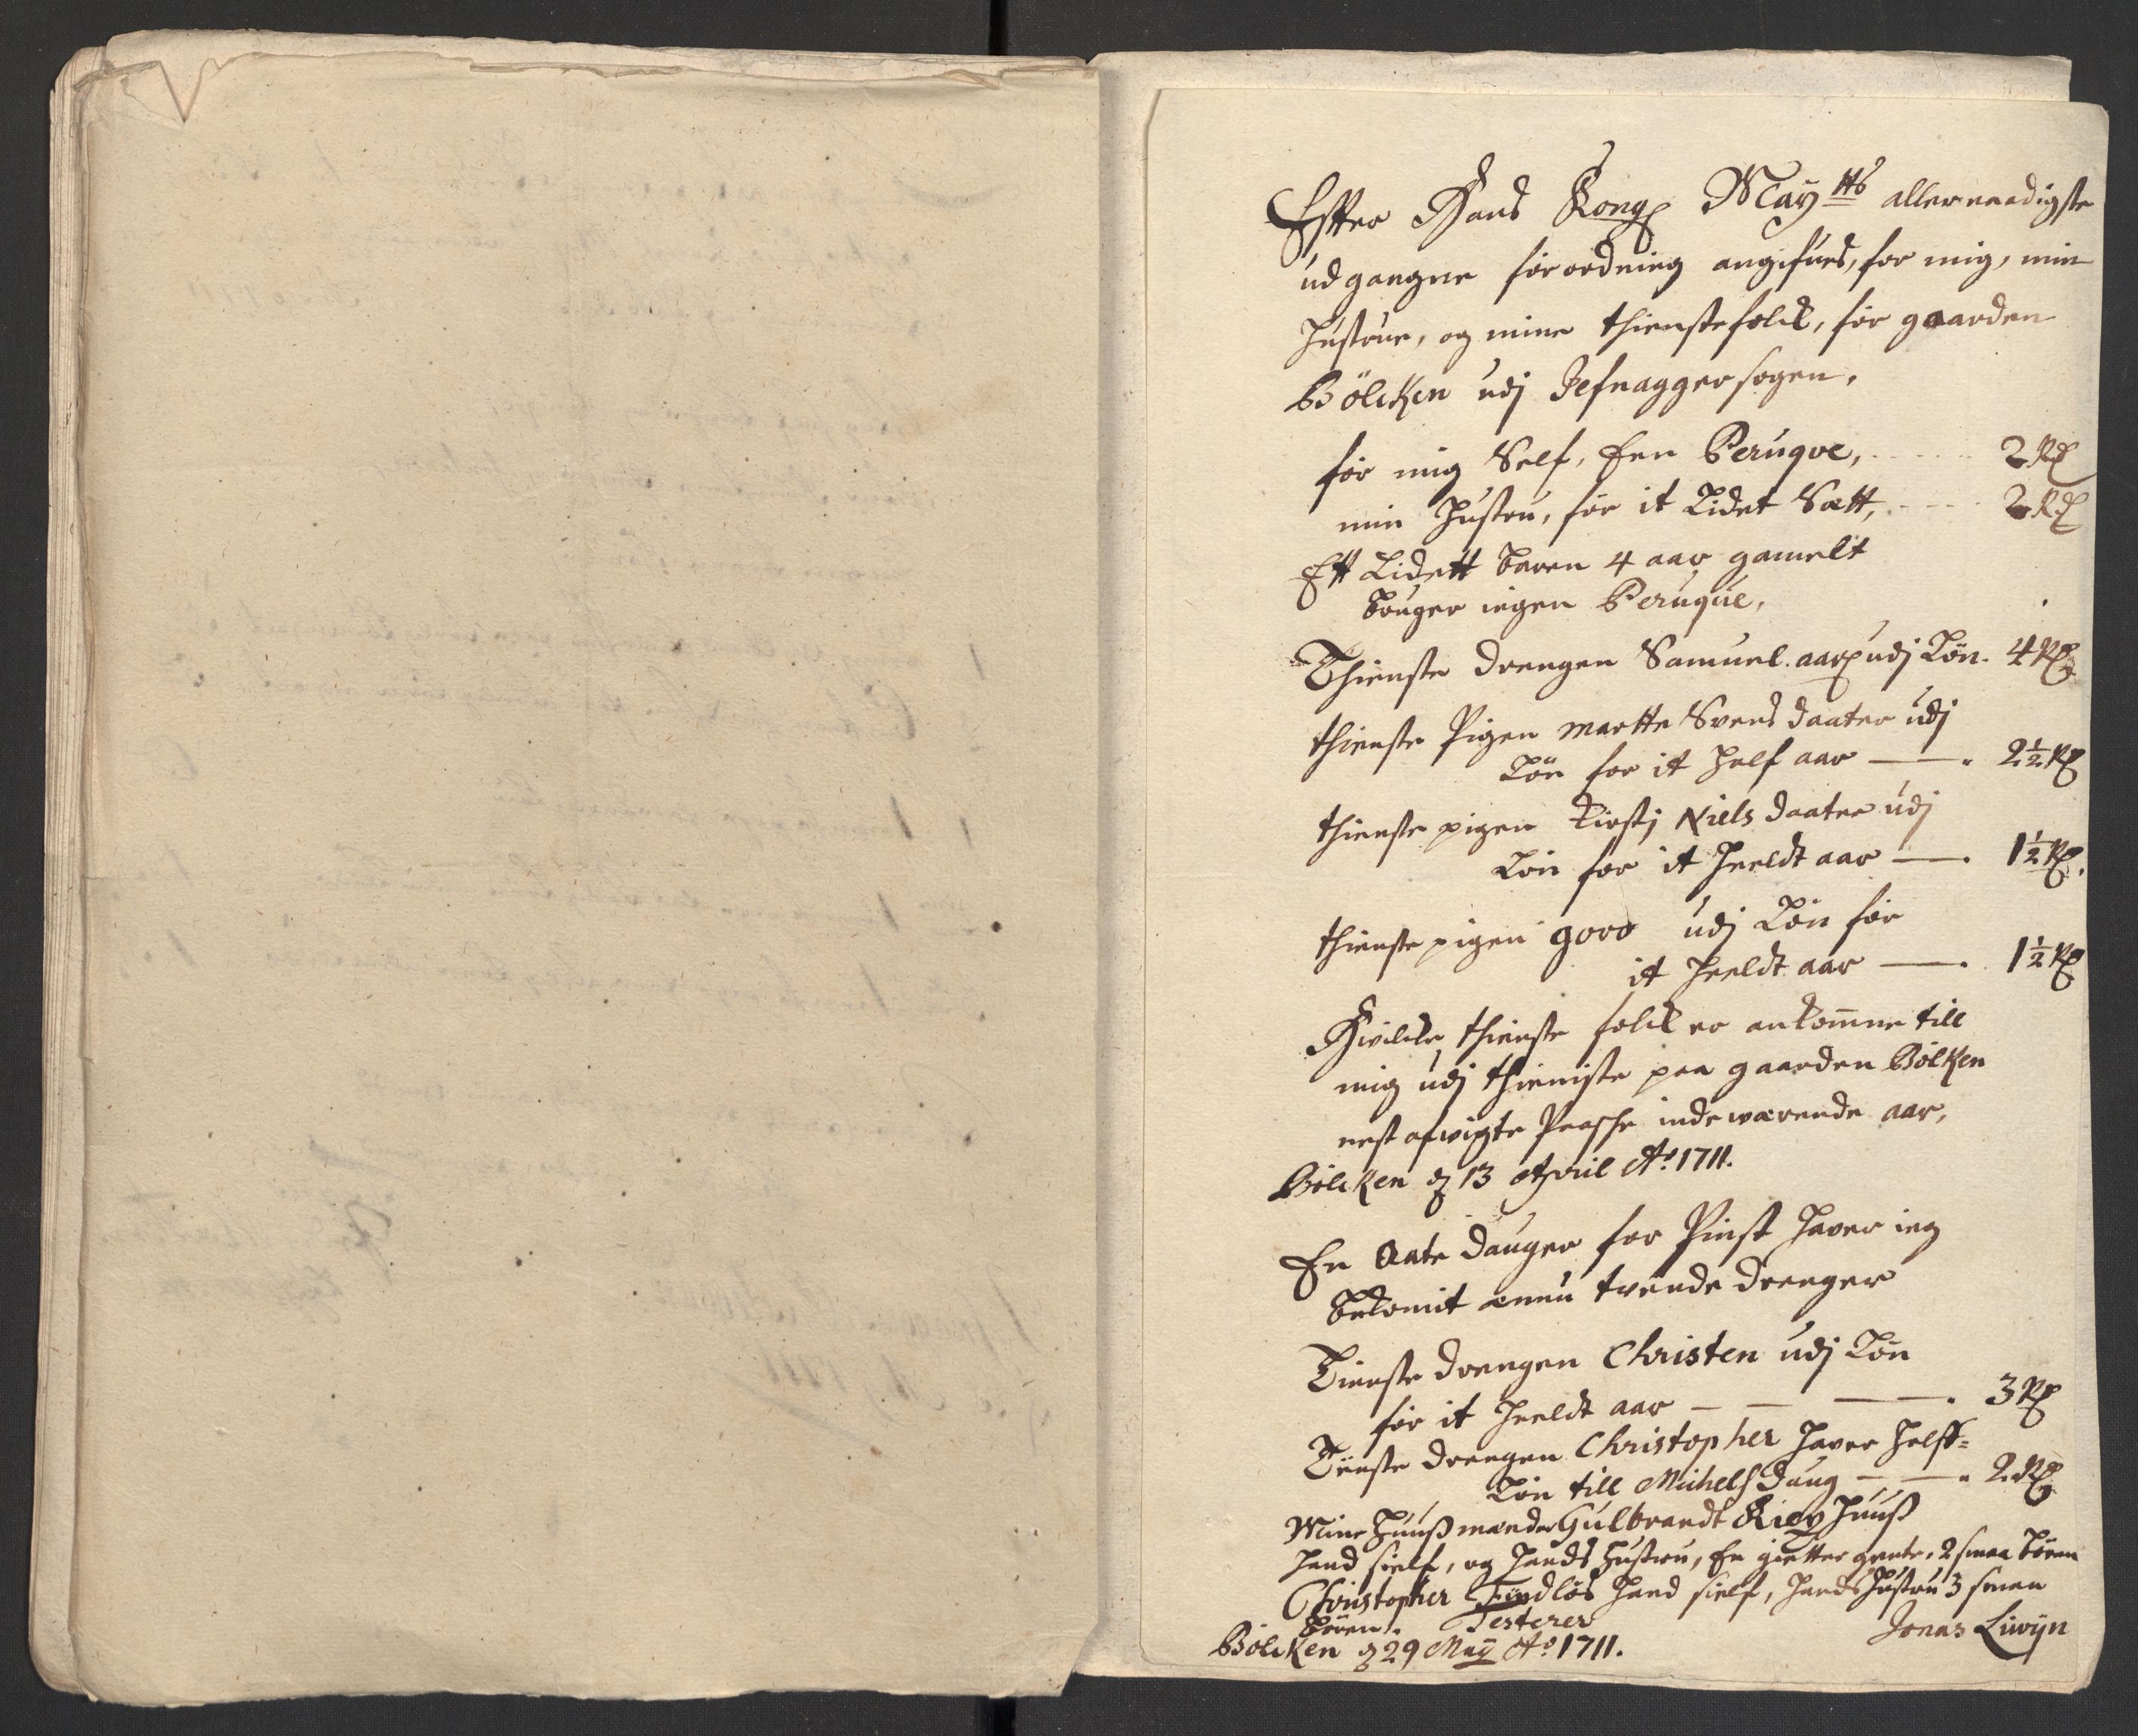 Effter Hans Kong: May:tts allernaadigste
udgangne forordning angifues, for mig, min
Hustrue, og mine thienstefolck, for gaarden
Bölcken udj Jefnagger sogen,
for mig Self, Een Peruqve, 2 Rd
min Hustru, for it Lidet Sett, 2 Rd
Ett Lidett baren 4 aar gamelt
bruger ingen Peruqüe,
Thienste drengen Samuel. aarl: udj Lön. 4 Rd
thienste Pigen Martte Svends daater udj
Lön for it half aar — 2½ Rd
thienste pigen Kirstj Niels daater udj
Lön for it heeldt aar — 1½ Rd.
thienste pigen goro udj Lön for
it heeldt aar — 1½ Rd
Hvilcke thienste folck er ankomne till
mig udj thieniste paa gaarden Bölken
nest afvigte Paasche indeværende aar,
Bölcken d 13 April Ao: 1711.
En Aate dauger for Pinst haver ieg
bekomit ennu tvende drenger
Tienste drengen Christen udj Lön
for it heeldt aar — — — 3 Rd
Tienste drengen Christopher haver halff-
Lön till Michelss daug — — 2 Rd
Mine Huussmænder Gulbrandt Kiey Huuss
hand sielf, og hands Hustru, En gietter gente, 2 smaa börn
Christopher Findlös hand sielf, hands Hustru 3 smaa
börn. Testerer
Jonas Liwÿn
Bölcken d 29 Maÿ Ao: 1711.